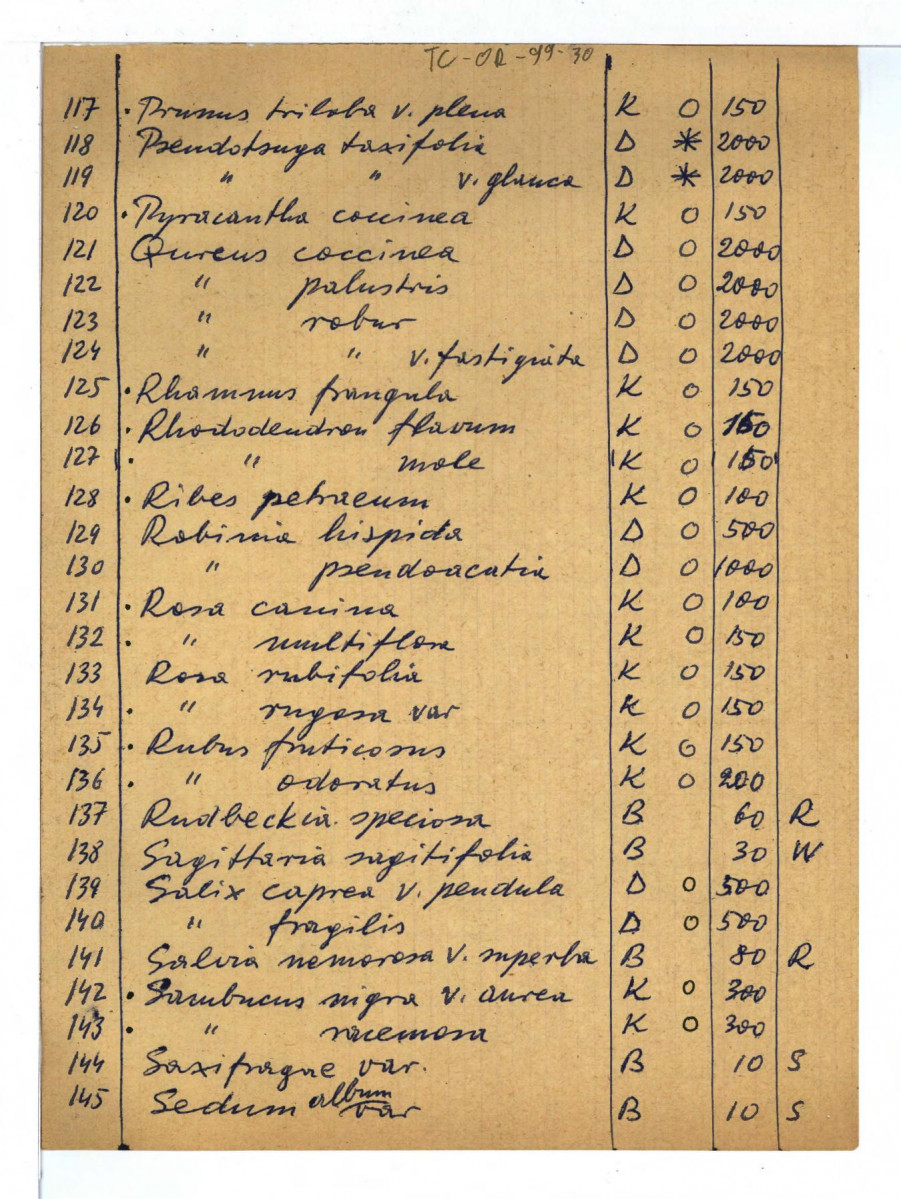 TC-OR-99-30
117 · Prunus triloba v. plena K O 150
118 Pseudotsuga taxifolia D * 2000
119 " " v. glauca D * 2000
120 · Pyracantha coccinea K O 150
121 Qureus coccinea D O 2000
122 " palustris D O 2000
123 " robur D O 2000
124 " " v. fastigiata D O 2000
125 · Rhamnus frangula K O 150
126 · Rhododendron flavum K O 150
127 · " mole K O 150
128 · Ribes petraeum K O 100
129 Robinia hispida D O 500
130 " pseudoacatia D O 1000
131 · Rosa canina K O 100
132 · " multiflora K O 150
133 Rosa rubifolia K O 150
134 · " rugosa var K O 150
135 · Rubus fruticosus K O 150
136 · " odoratus K O 200
137 Rudbeckia speciosa B 60 R
138 Sagittaria sagitifolia B 30 W
139 Salix caprea v. pendula D O 500
140 " fragilis D O 500
141 Salvia nemorosa v. superba B 80 R
142 · Sambucus nigra v. aurea K O 300
143 · " racemosa K O 300
144 Saxifragae var. B 10 S
145 Sedum album var B 10 S